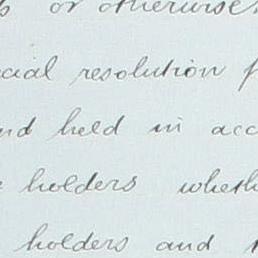 or otherwise
cial resolution f
nd held in acc
holders wheth
holders and